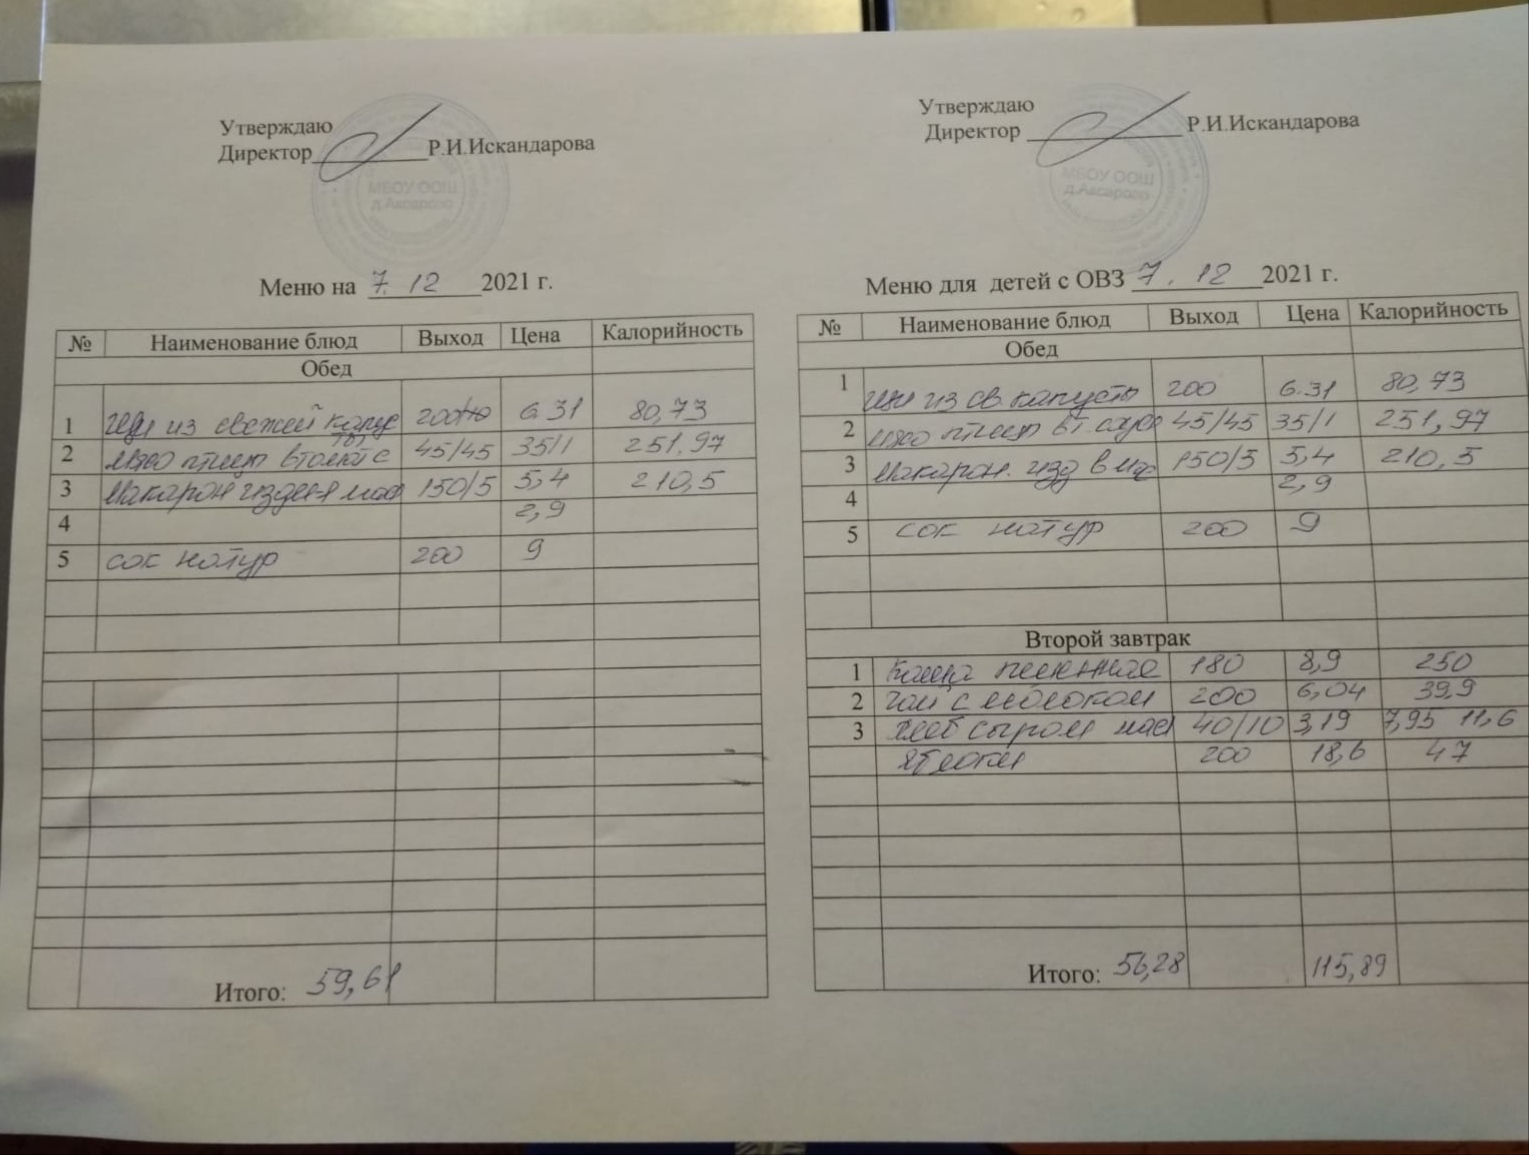 Утверждаю
Директор Р.И.Искандарова
МБОУ ООШ
д.Аксарово
Меню на 7. 12 2021 г.
№ Наименование блюд Выход Цена Калорийность
Обед
1 Щи из свежей капус 200/10 6.31 80,73
2 мясо птицы 45/45 35/1 251.97
3 Макарон издел 150/5 5,4 210,5
4 2,9
5 сок натур 200 9
Итого: 59,61
Утверждаю
Директор Р.И.Искандарова
МБОУ ООШ
д.Аксарово
Меню для детей с ОВЗ 7. 12 2021 г.
№ Наименование блюд Выход Цена Калорийность
Обед
1 Щи из св. капусты 200 6.31 80,73
2 мясо птицы 45/45 35/1 251,97
3 Макарон. изд 150/5 5,4 210,5
4 2,9
5 сок натур 200 9
Второй завтрак
1 Каша пшенная 180 8,9 250
2 чай с молоком 200 6,04 39,9
3 хлеб сыром мас 40/10 3,19 7,95 11,6
яблоки 200 18,6 47
Итого: 56,28 115,89